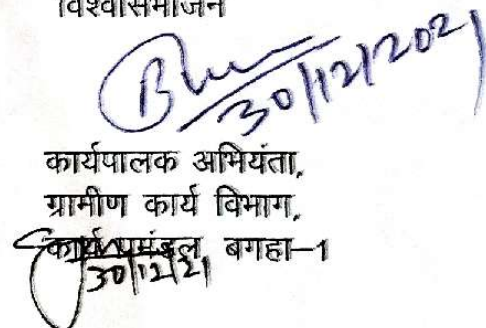 विश्वासभाजन
30/12/2021
कार्यपालक अभियंता,
ग्रामीण कार्य विभाग,
कार्य प्रमंडल बगहा–1
30/12/21